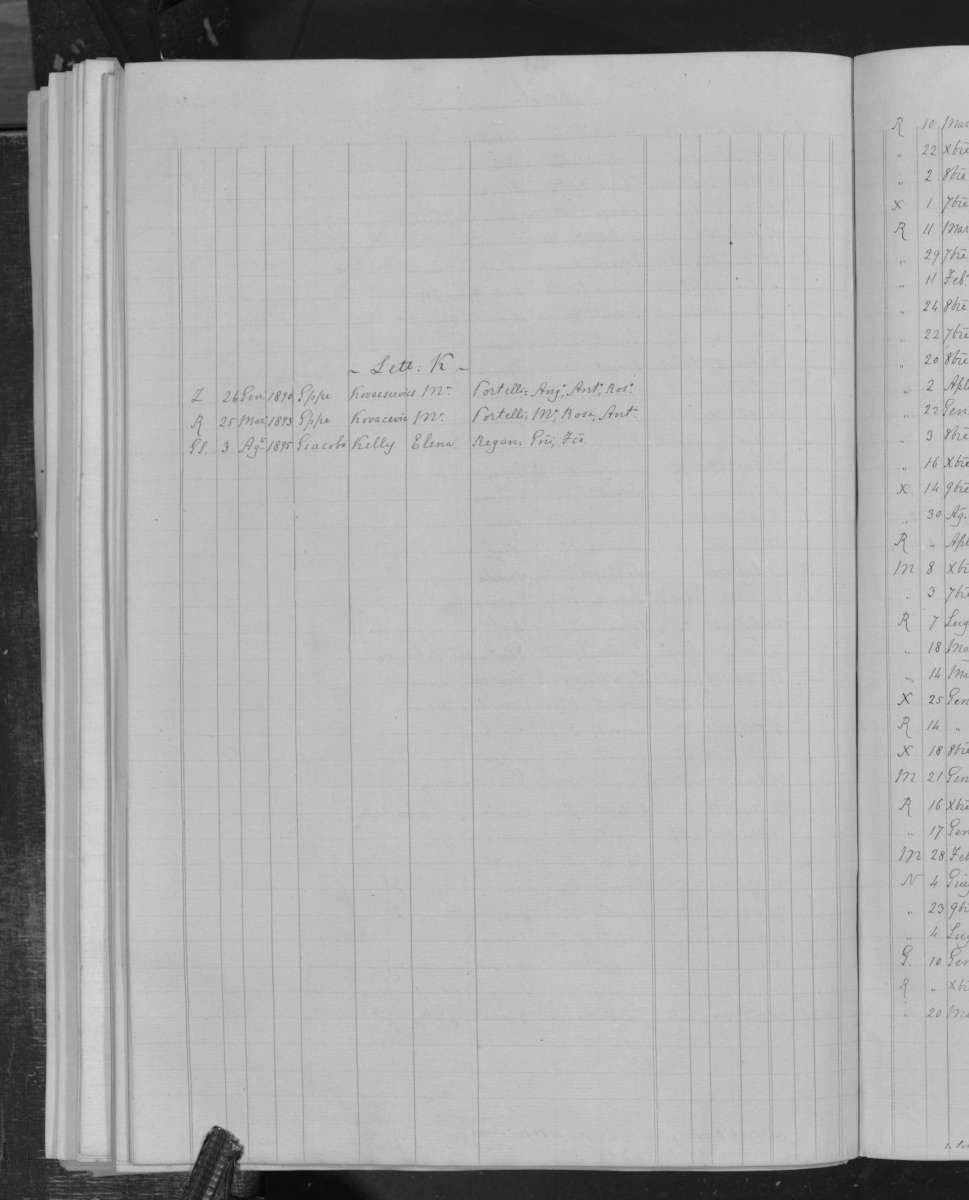 ~ Lett: K ~
Z 26 Gen. 1890 Gppe M.ª Portelli: Ang.ª, Ant.ª, Ros.ª
R 25 Mar. 1893 Gppe Kovacevic M.ª Portelli, M.ª, Rosa, Ant.
3 Ag.º 1895 Giacobo Kelly Elena Regan:
R 10 Mar
„ 22 Xbre
„ 2 8bre
X 1 7bre
R 11 Mar
„ 29 7bre
„ 11 Feb.
„ 24 8bre
„ 22 7bre
„ 20 8bre
„ 2 Apl
„ 22 Gen
„ 3 8bre
„ 16 Xbre
X 14 9bre
„ 30 Ag.
R „ Apl
M 8 Xbre
. 3 7bre
R 7 Lug
„ 18 Mag
„ 14 Ma
X 25 Gen
R 14 „
X 18 8bre
M 21 Gen
R 16 Xbre
„ 17 Gen
M 28 Feb
N 4 Giug
„ 23 9bre
„ 4 Lug
G. 10 Gen
R „ Xbre
. 20 Ma